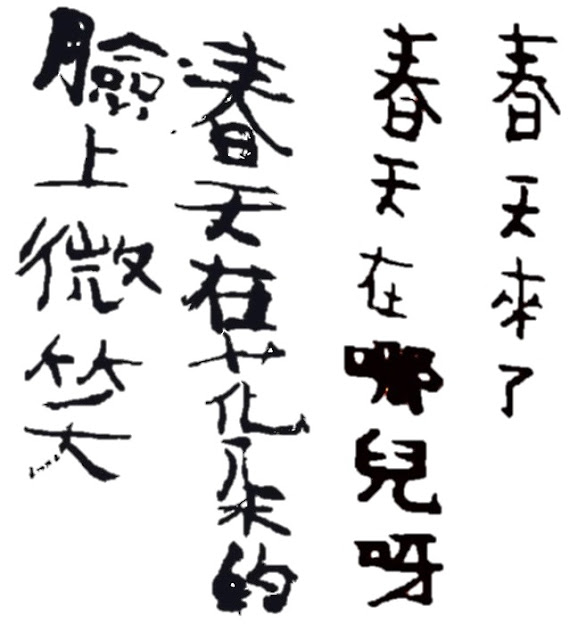 春天來了
春天在哪兒呀
春天在花朵的
臉上微笑